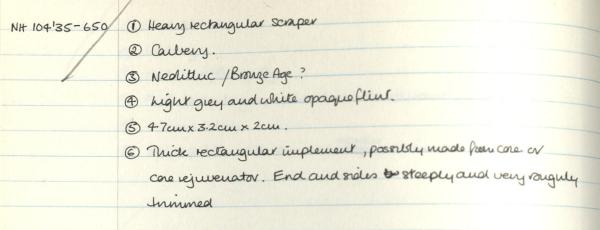 NH 104'35-650 ① Heavy rectangular scraper
② Carbery.
③ Neolithic / Bronze Age ?
④ Light grey and white opaque flint.
⑤ 4.7cm x 3.2cm x 2cm.
⑥ Thick rectangular implement, possibly made from core or
core rejuvenator. End and sides steeply and very roughly
trimmed